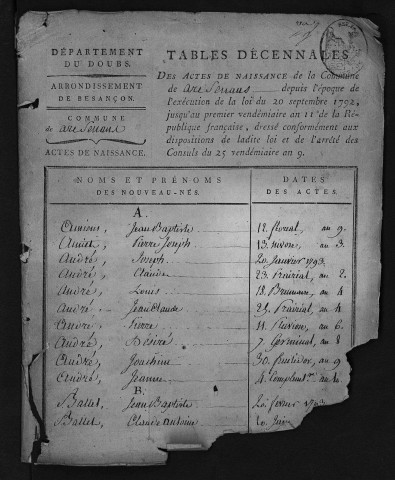 DÉPARTEMENT
DU DOUBS.
ARRONDISSEMENT
DE BESANÇON.
COMMUNE
de arc Senans
ACTES DE NAISSANCE.
TABLES DÉCENNALES
DES ACTES DE NAISSANCE de la Commune
de arc Senans depuis l'époque de
l'exécution de la loi du 20 septembre 1792,
jusqu'au premier vendémiaire an 11 de la Ré-
publique française, dressé conformément aux
dispositions de ladite loi et de l'arrêté des
Consuls du 25 vendémiaire an 9.
NOMS ET PRÉNOMS
DES NOUVEAU-NÉS.
DATES
DES ACTES.
A.
Jean Baptiste 12. floreal, an 9.
Pierre Joseph 13. nivose, an 3.
André, Joseph 20. janvier 1793.
André, Claude 23. Prairial, an 2.
André, Louis 18. Brumaire, an 4
André Jean Claude 21. Prairial, an 4
André Pierre 11. Pluviose, an 6.
André, Désiré 7. Germinal, an 8
André, Joachim 30. an 9
André, Jeanne 4. an
B.
Ballet, Jean Baptiste 20. fevrier 1793
Ballet, Claude Antoine 20